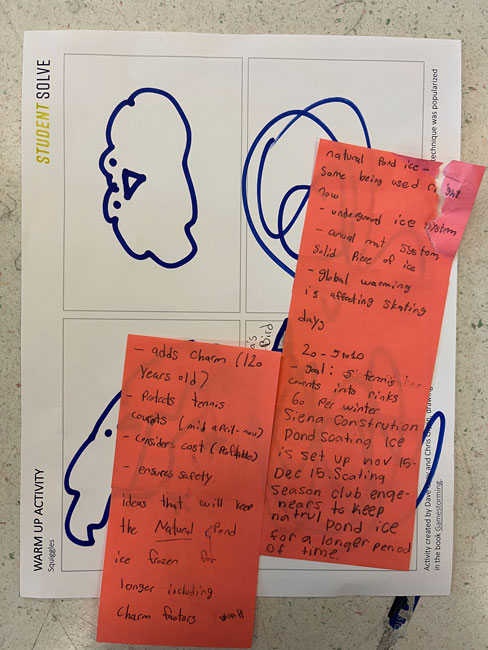 STUDENT SOLVE
WARM UP ACTIVITY
Squiggles
Bird
technique was popularized
Activity created by Dave
and Chris
drawing
in the book Gamestorming.
natural Pond ice -
Same being used
now
- underground ice system
- mat system
Solid Piece of ice
- global warming
is affecting skating
days
20 -
- goal: 5 tennis
courts into rinks
60 Per winter
Siena Constrution
Pond Scating Ice
is set up nov 15-
Dec 15. Scating
Season club enge-
nears to keep
natrul Pond ice
for a longer period
of time.
- adds Charm (120
Years old)
- Protects tennis
courts (mid april-nov)
- considers cost (Profitable)
- ensures safety
ideas that will keep
the Natural Pond
ice frozen for
longer including
Charm factors